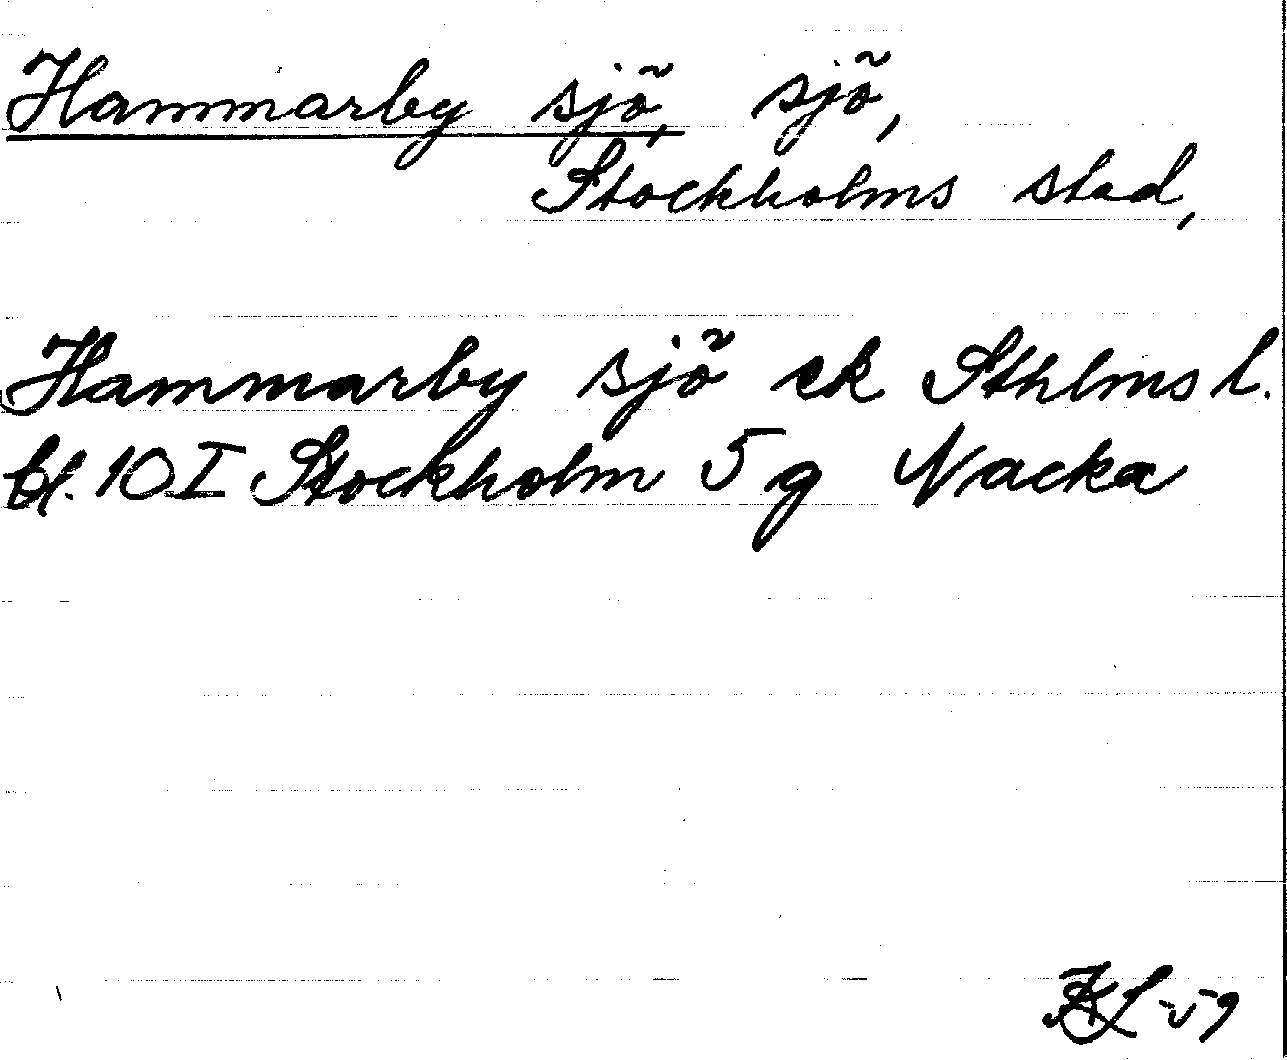 Hammarby sjö, sjö,
Stockholms stad,
Hammarby sjö ek Sthlms l.
bl. 10 I Stockholm 5 g Nacka
KL -59